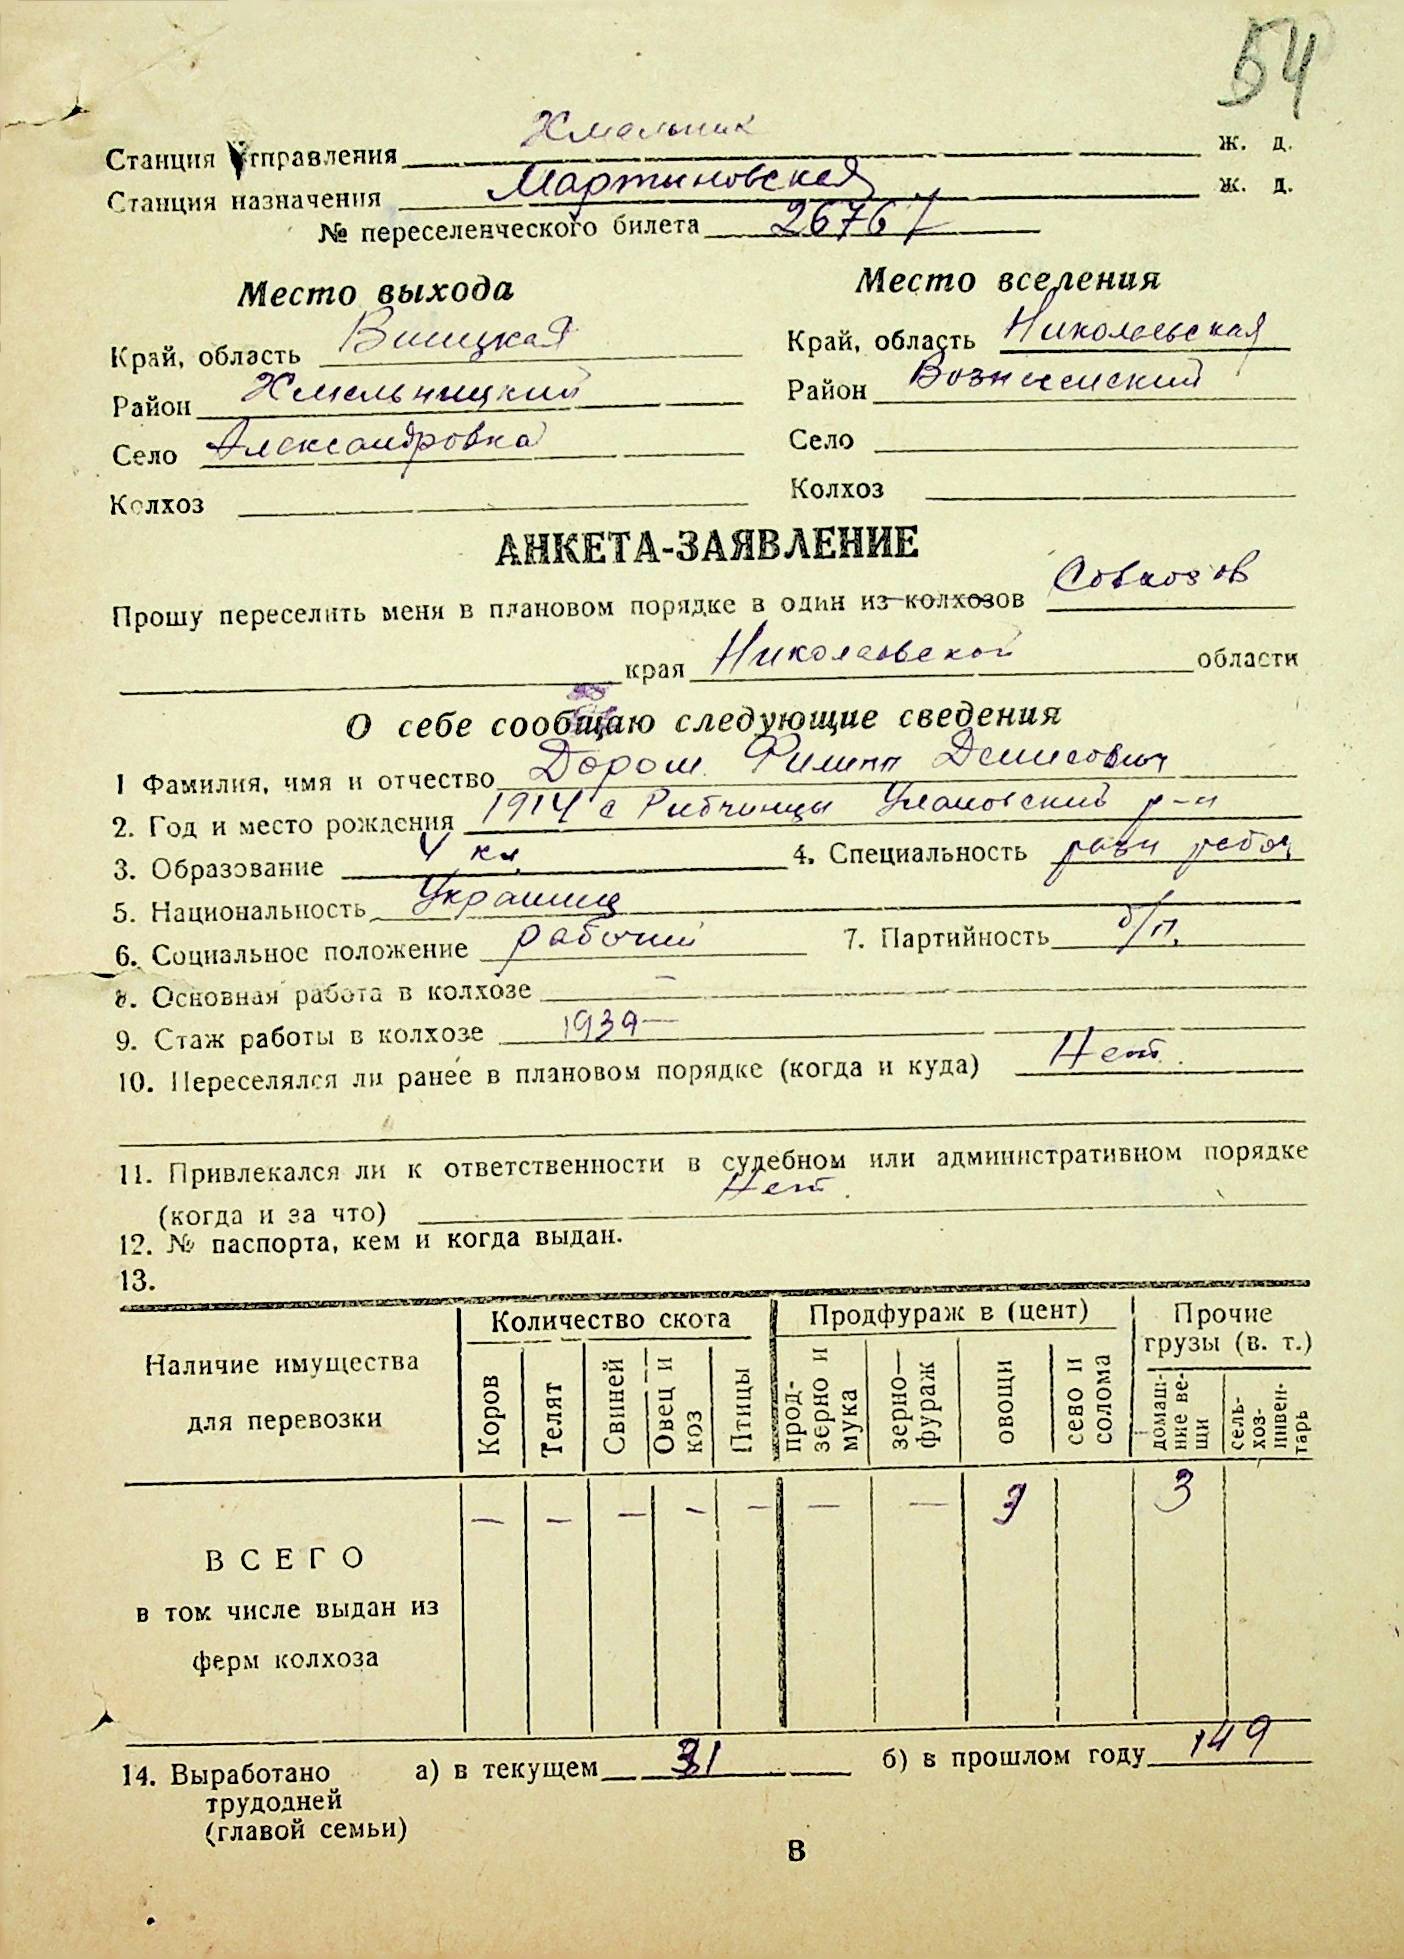 54
Станция отправления Хмельник ж. д.
Станция назначения Мартыновская ж. д.
№ переселенческого билета 26767
Место выхода
Край, область Виницкая
Район Хмельницкий
Село Александровка
Колхоз
Место вселения
Край, область Николаевская
Район Вознесенский
Село
Колхоз
АНКЕТА-ЗАЯВЛЕНИЕ
Прошу переселить меня в плановом порядке в один из колхозов Совхозов
края Николаевской области
О себе сообщаю следующие сведения
1 Фамилия, имя и отчество Дорош Филипп Денисович
2. Год и место рождения 1914 с Рибчинцы Улановский р-н
3. Образование 4 кл. 4. Специальность разн рабоч
5. Национальность Украинец
6. Социальное положение рабочий 7. Партийность б/п.
8. Основная работа в колхозе —
9. Стаж работы в колхозе 1939—
10. Переселялся ли ранее в плановом порядке (когда и куда) Нет.
11. Привлекался ли к ответственности в судебном или административном порядке
(когда и за что) Нет.
12. № паспорта, кем и когда выдан.
13.
Наличие имущества для перевозки
Количество скота
Продфураж в (цент)
Прочие грузы (в. т.)
Коров
Телят
Свиней
Овец и коз
Птицы
прод-зерно и мука
зерно—фураж
овощи
сено и солома
домаш-ние ве-щи
сель-хоз-инвен-тарь
— — — — — — — 3 3
ВСЕГО
в том числе выдан из
ферм колхоза
14. Выработано а) в текущем 31 б) в прошлом году 149
трудодней
(главой семьи)
В